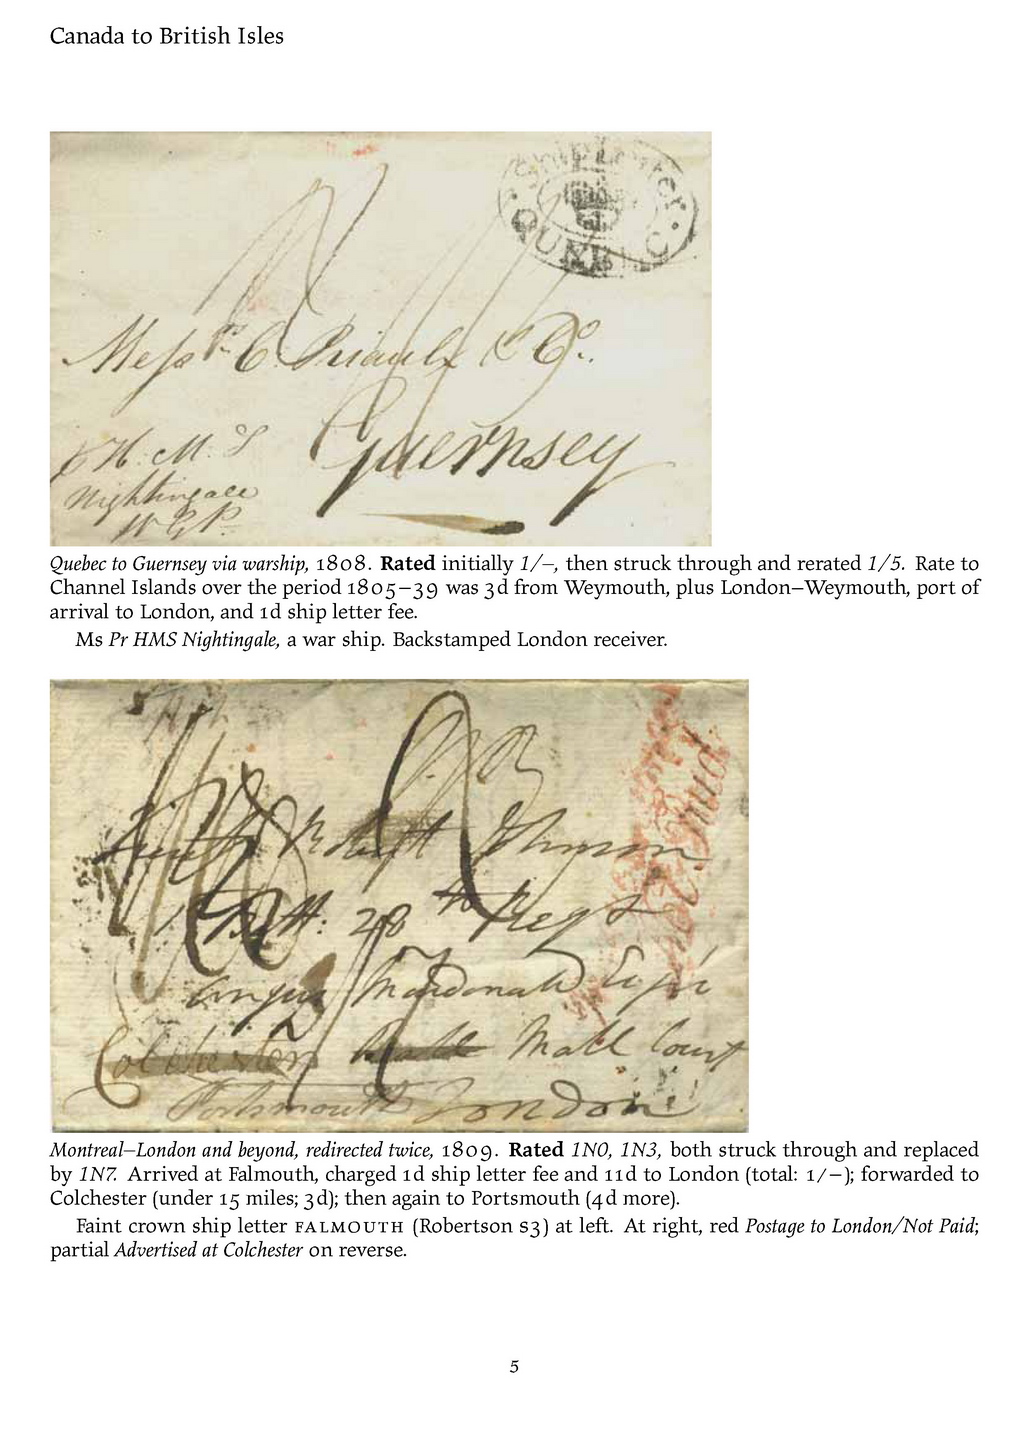 Canada to British Isles
Ship Letter
QUEBEC
Messrs C. Priaulx & Co.
Guernsey
H.M.S
Nightingale
Quebec to Guernsey via warship, 1808. Rated initially 1/–, then struck through and rerated 1/5. Rate to
Channel Islands over the period 1805–39 was 3d from Weymouth, plus London–Weymouth, port of
arrival to London, and 1d ship letter fee.
Ms Pr HMS Nightingale, a war ship. Backstamped London receiver.
Robert Johnson
1 Batt: 28th Regt
Angus Macdonald Esqr
Colchester Mall Court
Portsmouth London
Not Paid
Montreal–London and beyond, redirected twice, 1809. Rated 1N0, 1N3, both struck through and replaced
by 1N7. Arrived at Falmouth, charged 1d ship letter fee and 11d to London (total: 1/–); forwarded to
Colchester (under 15 miles; 3d); then again to Portsmouth (4d more).
Faint crown ship letter FALMOUTH (Robertson S3) at left. At right, red Postage to London/Not Paid;
partial Advertised at Colchester on reverse.
5